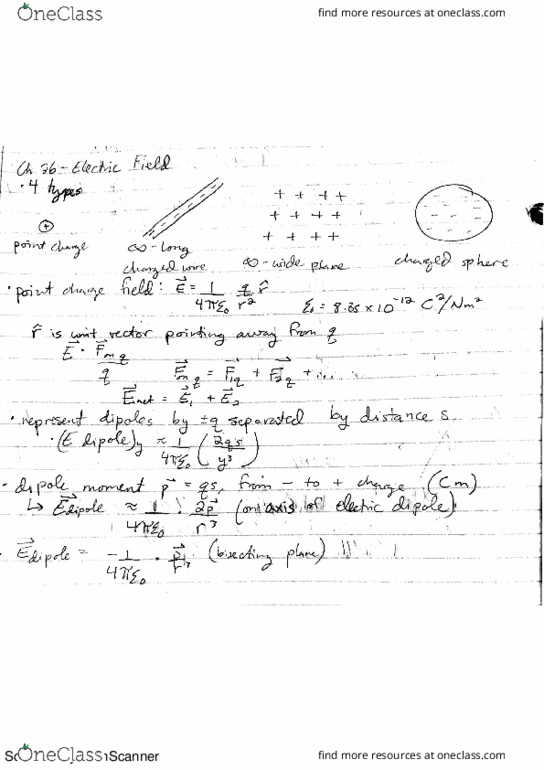 OneClass find more resources at oneclass.com
Ch 26 - Electric Field
• 4 types
+ + + +
+ + + +
+ + + +
point charge ∞-long charged wire ∞-wide plane charged sphere
• point charge field: E⃗ = 1/4πε₀ q/r² r̂ ε₀ = 8.85 x 10⁻¹² C²/Nm²
r̂ is unit vector pointing away from q
E⃗ = F⃗ on q / q F⃗ on q = F⃗1q + F⃗2q + ...
E⃗net = E⃗₁ + E⃗₂
• represent dipoles by ±q separated by distance s
• (E dipole)y ≈ 1/4πε₀ (2qs/y³)
• dipole moment p⃗ = qs, from - to + charge (Cm)
↳ E⃗dipole ≈ 1/4πε₀ · 2p⃗/r³ (on axis of electric dipole)
• E⃗dipole = -1/4πε₀ · p⃗/r³ (bisecting plane)
OneClass Scanner find more resources at oneclass.com